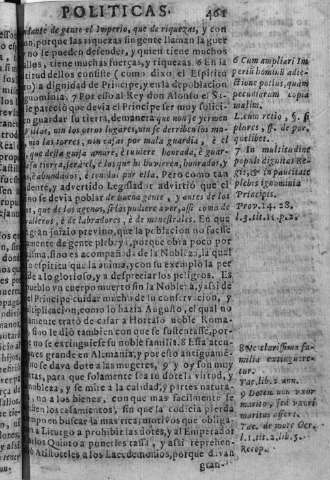 POLITICAS. 461
dante de gente el Imperio, que de riquezas, y con
on, porque las riquezas sin gente llaman la guer
no se pueden defender, y quien tiene muchos
llos, tiene muchas fuerças, y riquezas. 6 En la
titud dellos consiste (como dixo el Espiritu
to) a dignidad de Principe, y en la depoblacion
gnominia. 7 Por esto al Rey don Alonso el S.
pareciò que devia el Principe ser muy solici-
n guardar su tierra, de manera que non se yermen
villas, nin los otros lugares, nin se derriben los mu
nin las torres, nin casas por mala guardia, è el
que desta guisa amare, è tuviere honrada, è guar
su tierra, serà el, è los que hi huvieren, honrados, y
, è abundados, è temidos por ella. Pero como tan
dente, y advertido Legislador advirtiò que el
no se devia poblar de buena gente, y antes de los
que de los agenos, si los pudiere aver, assi como de
valleros, è de labradores, è de menestrales. En que
gran juizio previno, que la poblacion no fuesse
mente de gente plebeya, porque obra poco por
misma, sino es acompañada de la Nobleza, la qual
espiritu que la anima, y con su exemplo la per
de a lo glorioso, y a despreciar los peligros. Es
pueblo vn cuerpo muerto sin la Nobleza, y assi de
el Principe cuidar mucho de su conservacion, y
ltiplicacion, como lo hazia Augusto, el qual no
amente tratò de casar a Hortalo noble Roma-
sino le diò tambien con que se sustentasse, por-
no se extinguiesse su noble familia. 8 Esta aten-
n es grande en Alemania, y por esto antiguamē-
no se dava dote a las mugeres, 9 y oy son muy
tas, para que solamente sea su dote la virtud, y
nobleza, y se mire a la calidad, y partes natura-
no a los bienes, con que mas facilmente se
den los casamientos, sin que la codicia pierda
mpo en buscar la mas rica; motivos que obliga-
a Licurgo a prohibir las dotes, y al Emperador
los Quinto a ponerles tassa, y assi reprehen-
ò Aristoteles a los Lacedemonios, porque davan
gran-
6 Cum ampliari Im
perii hominū adie-
ctione potius, quàm
pecuniarum copia
malim.
L. cum ratio, §. si
plures, ff. de por.
quæ liber.
7 In multitudine
populi dignitas Re-
gis, & in paucitate
plebis ignominia
Principis.
Prov. 14. 28.
l. 3. tit. 11. p. 2.
8 Ne clarissima fa-
milia extinguere-
tur.
Tac. lib. 2. ann.
9 Dotem non vxor
marito, sed vxori
maritus offert.
Tac. de mor. Ger.
l. 1. tit. 2. lib. 5.
Recop.